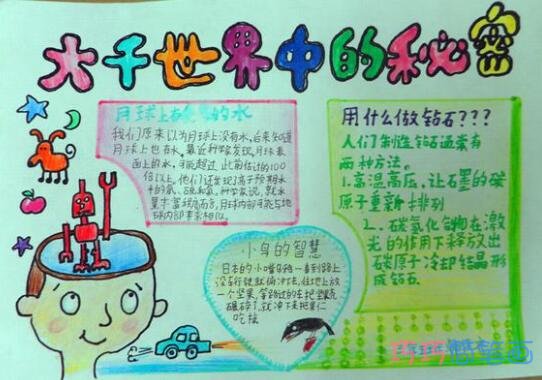 大千世界中的秘密
月球上有的水
我们原来以为月球上没有水,后来知道
月球上也有水,最近科学家发现,月球表
面上的水,可能超过此前估计的100
倍以上,他们还发现了高于预期水
中的氯、硫和氟,科学家说,就水
量丰富程度而言,月球内部可能与地
球内部非常相似。
用什么做钻石???
人们制造钻石通常有
两种方法。
1.高温高压,让石墨的碳
原子重新排列
2、碳氢化合物在激
光的作用下释放出
碳原子冷却结晶形
成钻石
小鸟的智慧
日本的小嘴乌鸦一看到路上
没有行驶就俯冲下去,往地上放
一个坚果,等路过的车把坚壳
碾碎了,就冲下来把果仁
吃掉